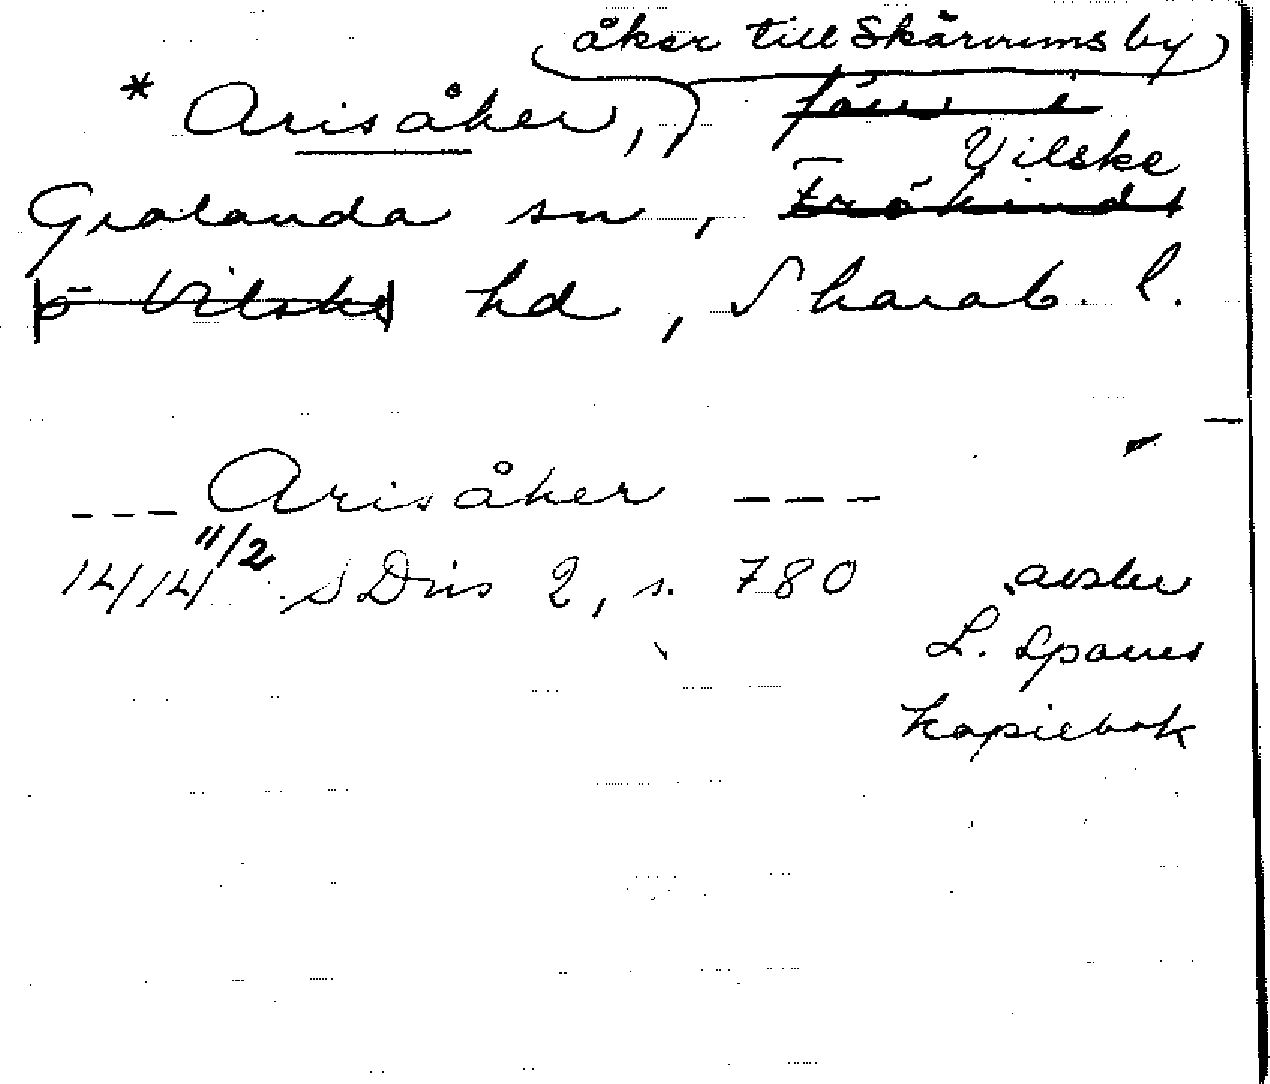 åker till Skärvums by
* Arisåker, förr i
Vilske
Grolanda sn, Frökinds
o Vilske hd, Skarab. l.
--- Arisåker ---
1414 11/2 SDns 2, s. 780 avskr
L. Sparres
kopiebok